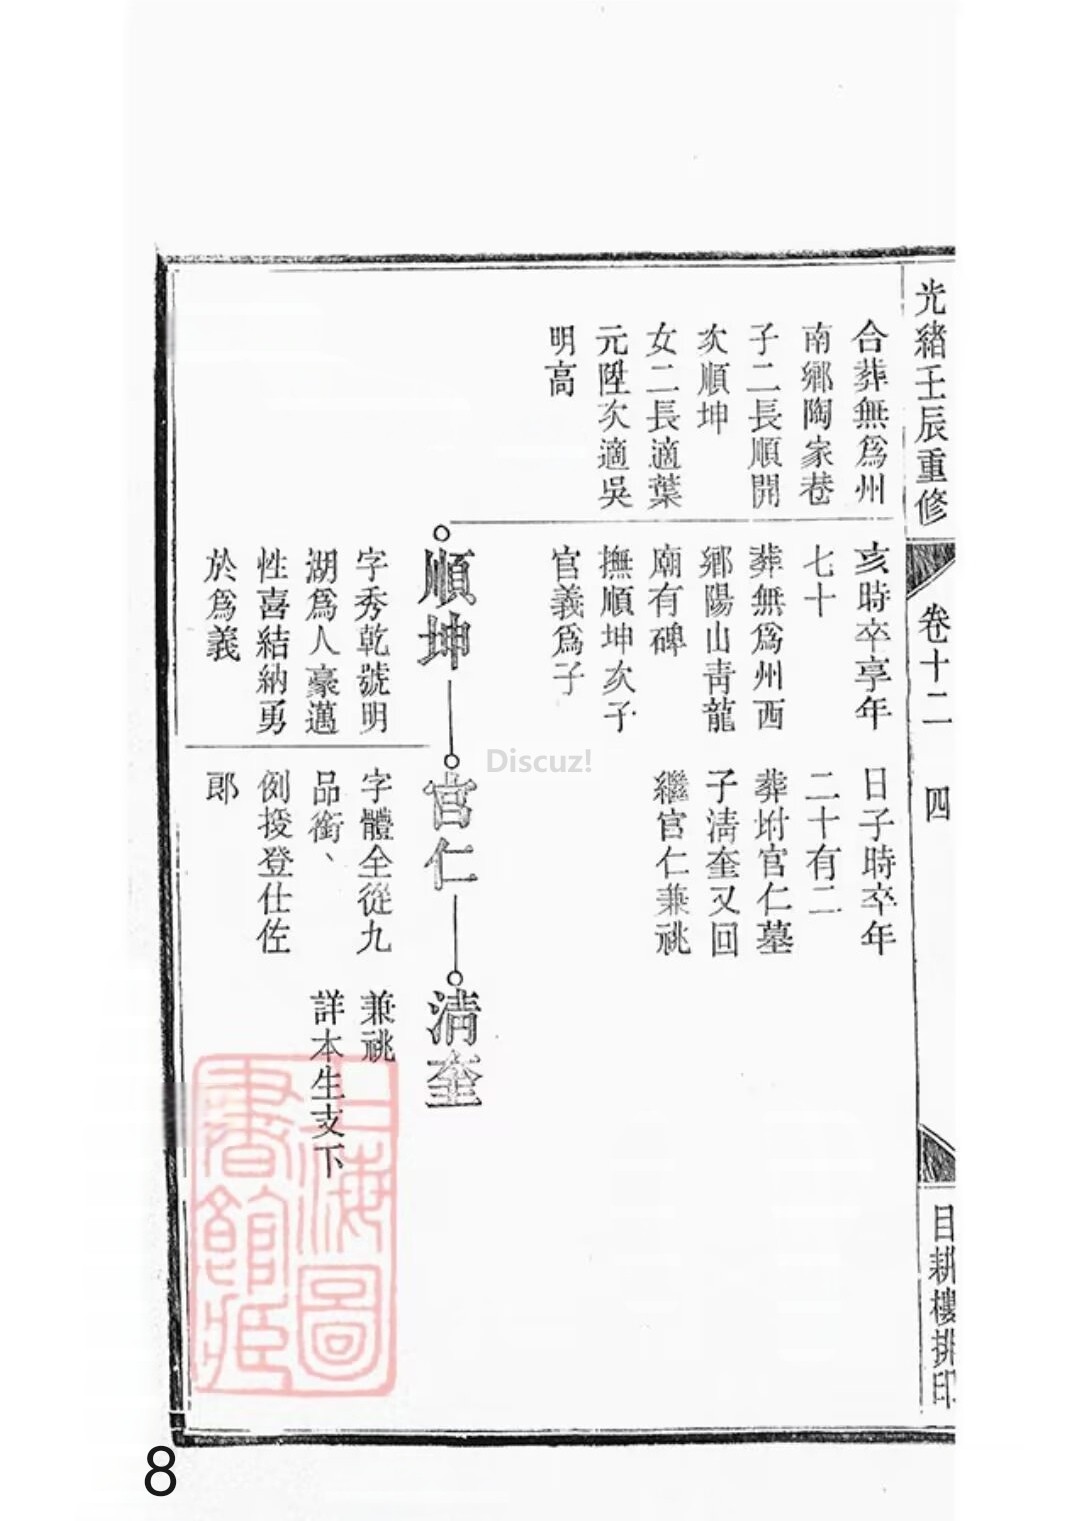 光緒壬辰重修
卷十二
四
目耕樓排印
合葬無爲州
南鄉陶家巷
子二長順開
次順坤
女二長適葉
元陞次適吳
明高
亥時卒享年
七十
葬無爲州西
鄉陽山靑龍
廟有碑
撫順坤次子
官義爲子
日子時卒年
二十有二
葬坿官仁墓
子淸奎又回
繼官仁兼祧
順坤
官仁
淸奎
字秀乾號明
湖爲人豪邁
性喜結納勇
於爲義
字體全從九
品銜、
例授登仕佐
郎
兼祧
詳本生支下
上海圖
書館藏
Discuz!
8